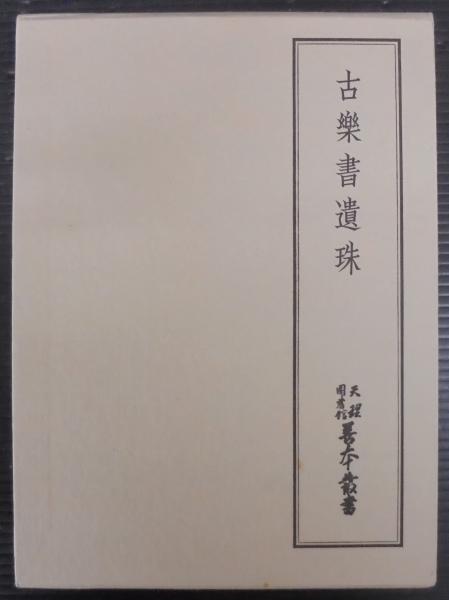 古樂書遺珠
天理圖書館善本叢書